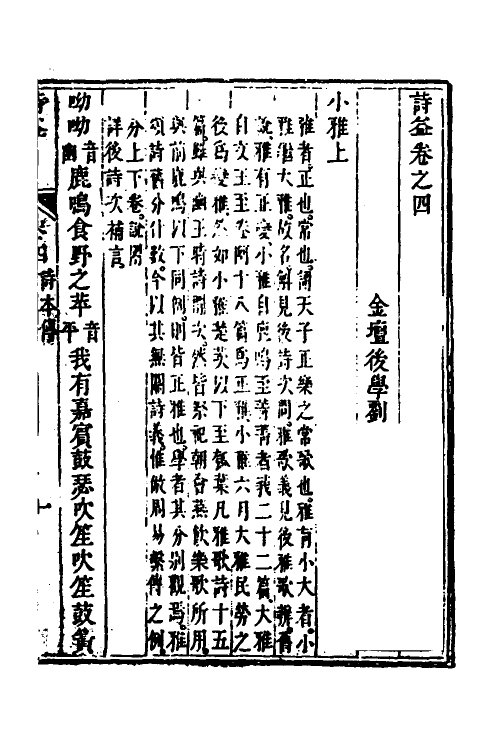 詩益卷之四
金壇後學劉
小雅上
雅者正也常也謂天子正樂之常歌也雅有小大者小
雅繼大雅故名解見後詩次問雅歌義見後雅歌辨舊
說雅有正變小雅自鹿鳴至菁菁者莪二十二篇大雅
自文王至卷阿十八篇爲正雅小雅六月大雅民勞之
後爲變雅然如小雅楚茨以下至瓠葉凡雅歌詩十五
篇雖與幽王時詩謂次然皆祭祀朝會燕飲樂歌所用
與前鹿鳴以下同例則皆正雅也學者其分別觀焉雅
頌詩舊分什數今以其無關詩義惟倣周易繫傳之例
分上下卷說問
詳後詩次補言
呦呦音幽鹿鳴食野之苹音平我有嘉賓鼓瑟吹笙吹笙鼓簧
詩益
卷四
詩本傳
一